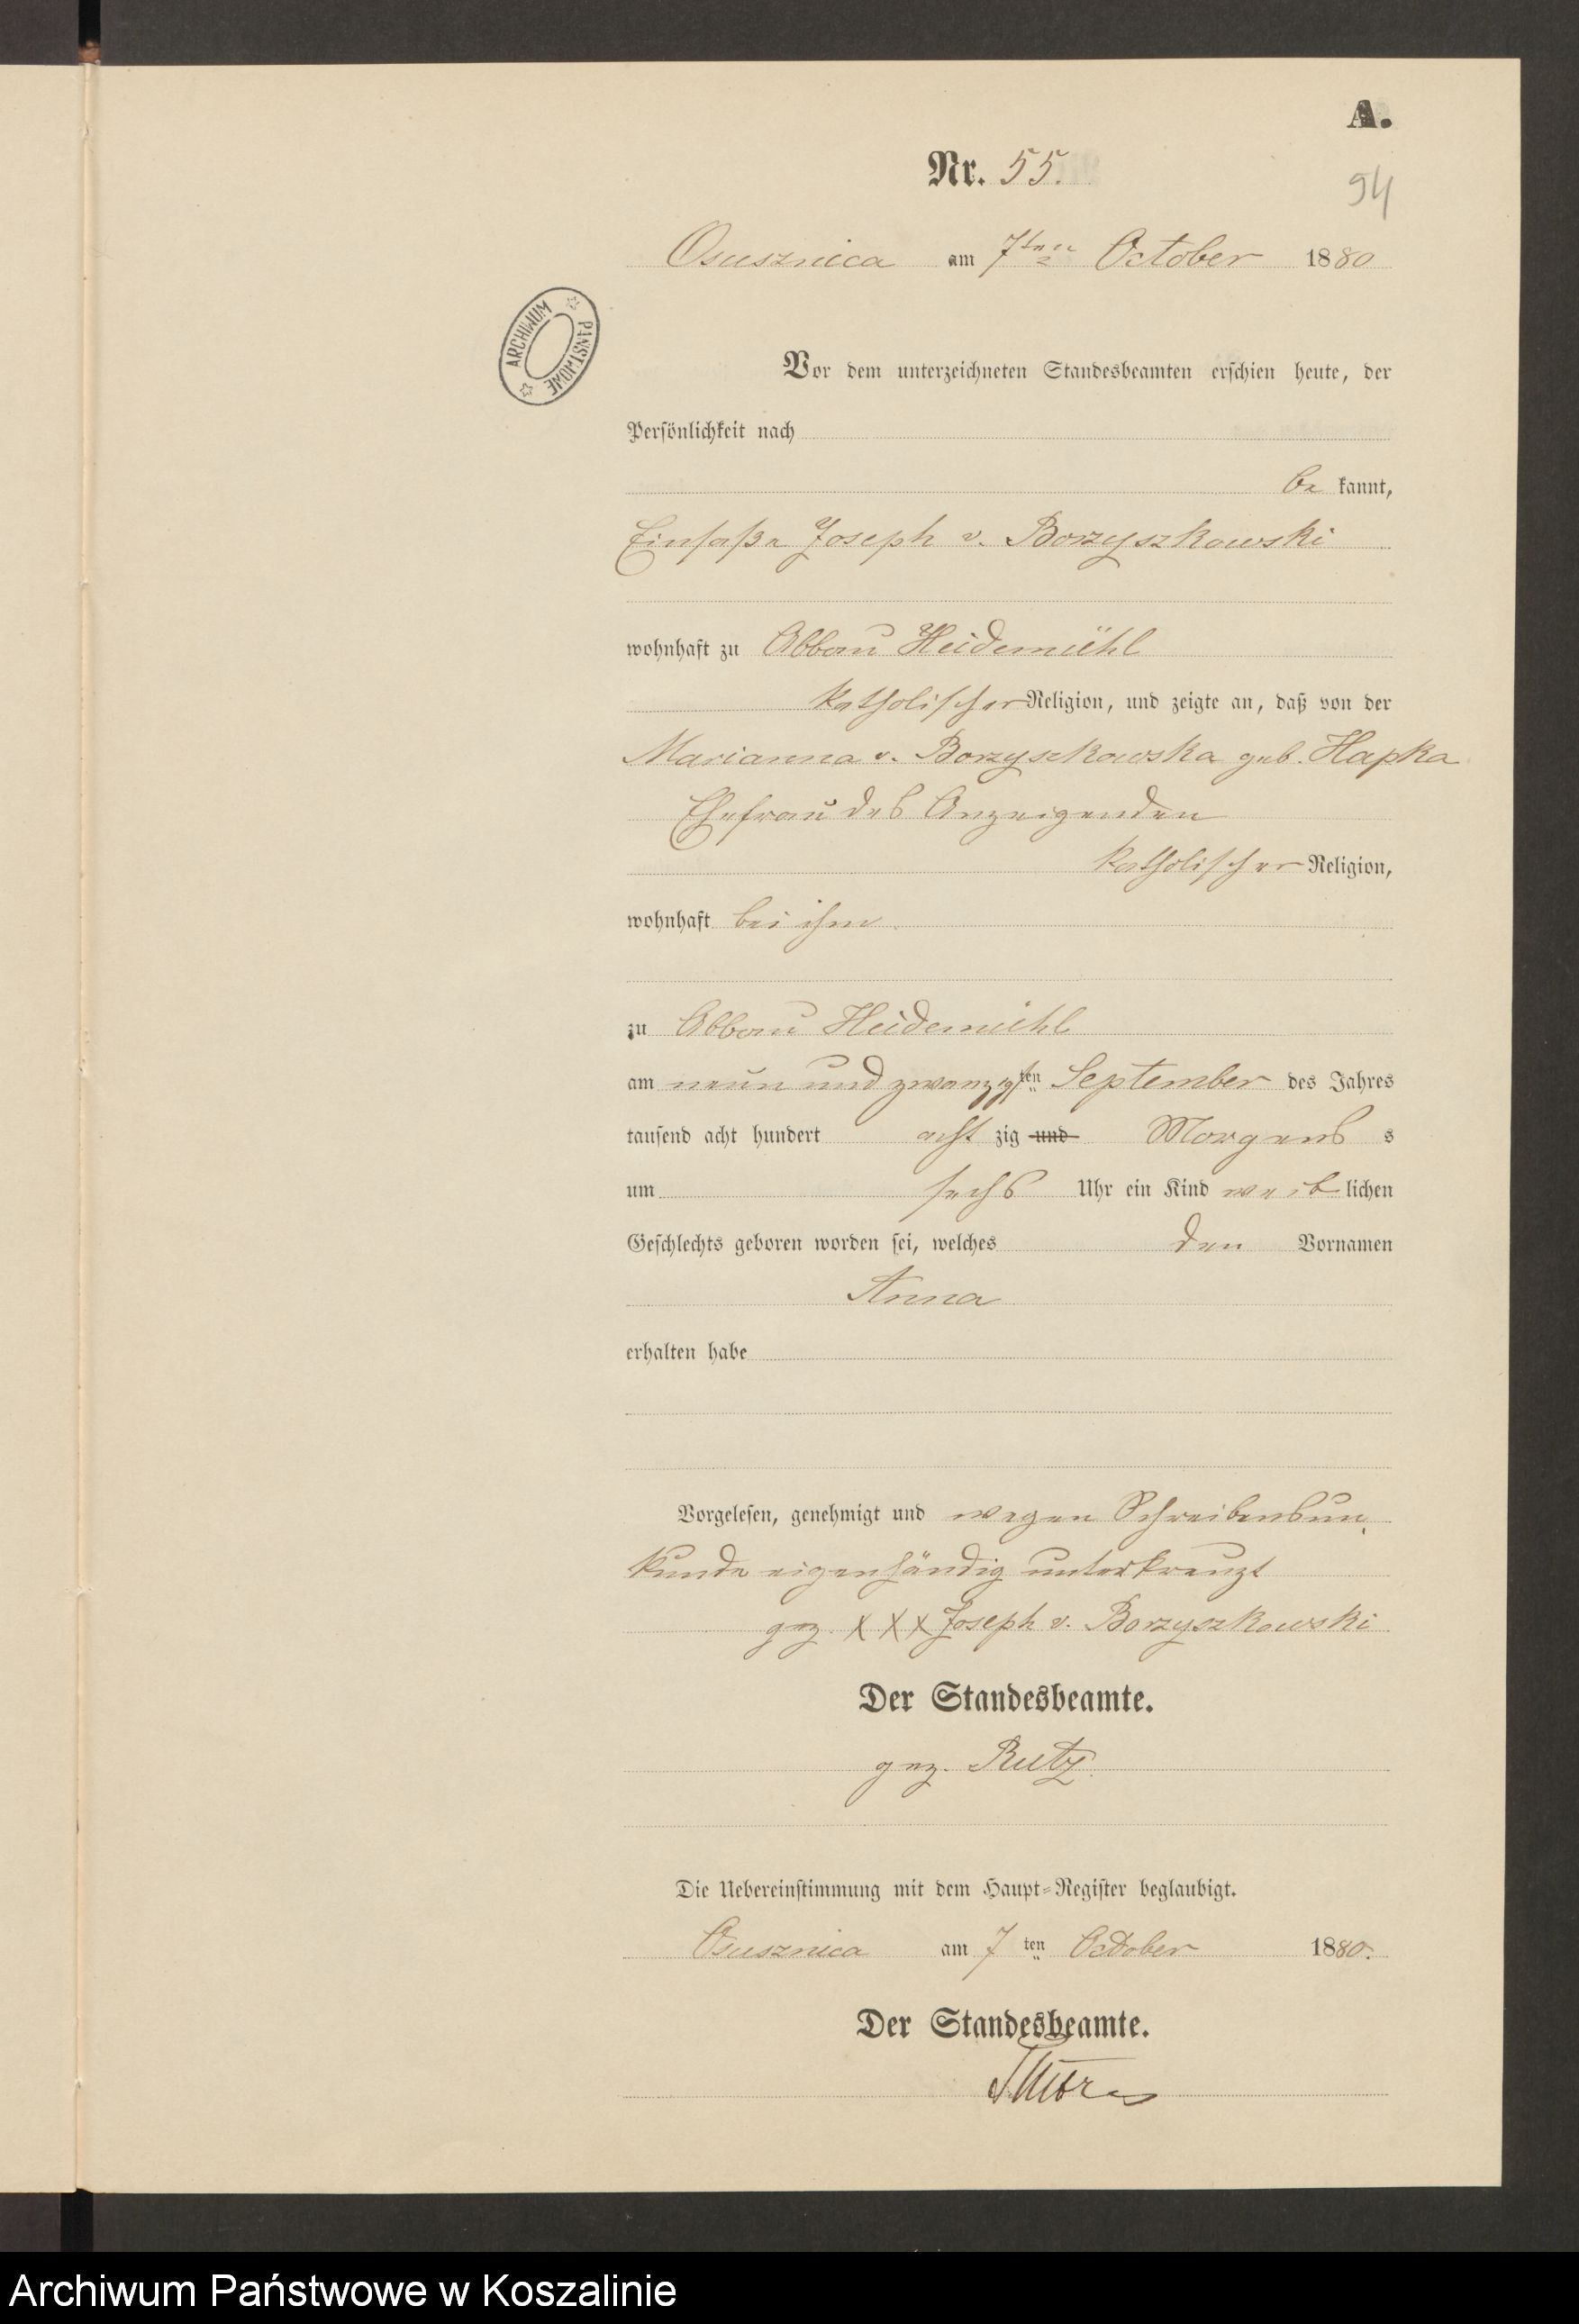 A.
Nr. 55.
94
Osusznica am 7ten October 1880
ARCHIWUM PAŃSTWOWE
Vor dem unterzeichneten Standesbeamten erschien heute, der
Persönlichkeit nach
be kannt,
Einsaße Joseph v. Borzyszkowski
wohnhaft zu Abbau Heidemühl
katholischer Religion, und zeigte an, daß von der
Marianna v. Borzyszkowska geb. Hapka
Ehefrau des Anzeigenden
katholischer Religion,
wohnhaft bei ihm
zu Abbau Heidemühl
am neun und zwanzigsten September des Jahres
tausend acht hundert acht zig und Morgens s
um sechs Uhr ein Kind weib lichen
Geschlechts geboren worden sei, welches den Vornamen
Anna
erhalten habe
Vorgelesen, genehmigt und wegen Schreibensun
kunde eigenhändig unterkreuzt
gez. XXX Joseph v. Borzyszkowski
Der Standesbeamte.
gez. Rutz.
Die Uebereinstimmung mit dem Haupt-Register beglaubigt.
Osusznica am 7 ten October 1880.
Der Standesbeamte.
Archiwum Państwowe w Koszalinie